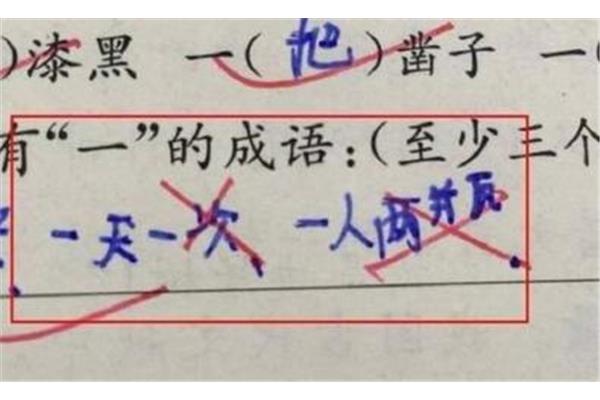 )漆黑 一(把)凿子 一(
有“一”的成语:(至少三个
. 一天一次. 一人两瓶.